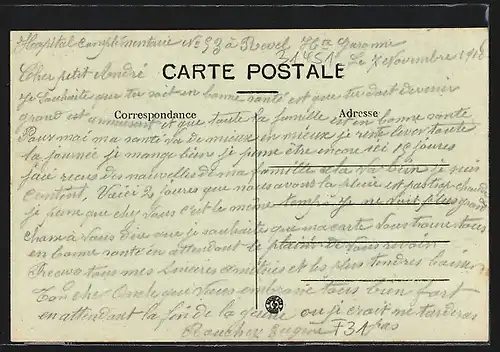 Hopital Complémentaire No 93 à Revel Hte Garonne
31451
Le 7 Novembre 1918
Cher petit André
CARTE POSTALE
Je Souhaite que tu soit en bonne santé est que tu doit devenir
Correspondance
Adresse
grand est amusent et que toute la famille est en bonne santé
Pour moi ma santé va de mieux en mieux je reste lever toute
la journée je mange bien je pense être encore ici 10 jours
j'ai recus des nouvelles de ma famille il la va bien je suis
content, Voici 2 jours que nous avons la pluie est pas trop chaud
je pense que chez Vous c'est le meme temps je ne voit plus grand
chose à Vous dire que je souhaite que ma carte Vous trouve tous
en bonne santé en attendant le plaisir de Vous revoir
Recevez tous mes sincères amitiés et les plus tendres baisers
Ton cher Oncle qui Vous embrasse tous bien fort
en attendant la fin de la guerre ou je croit ne tardera
pas
Eugène
F31